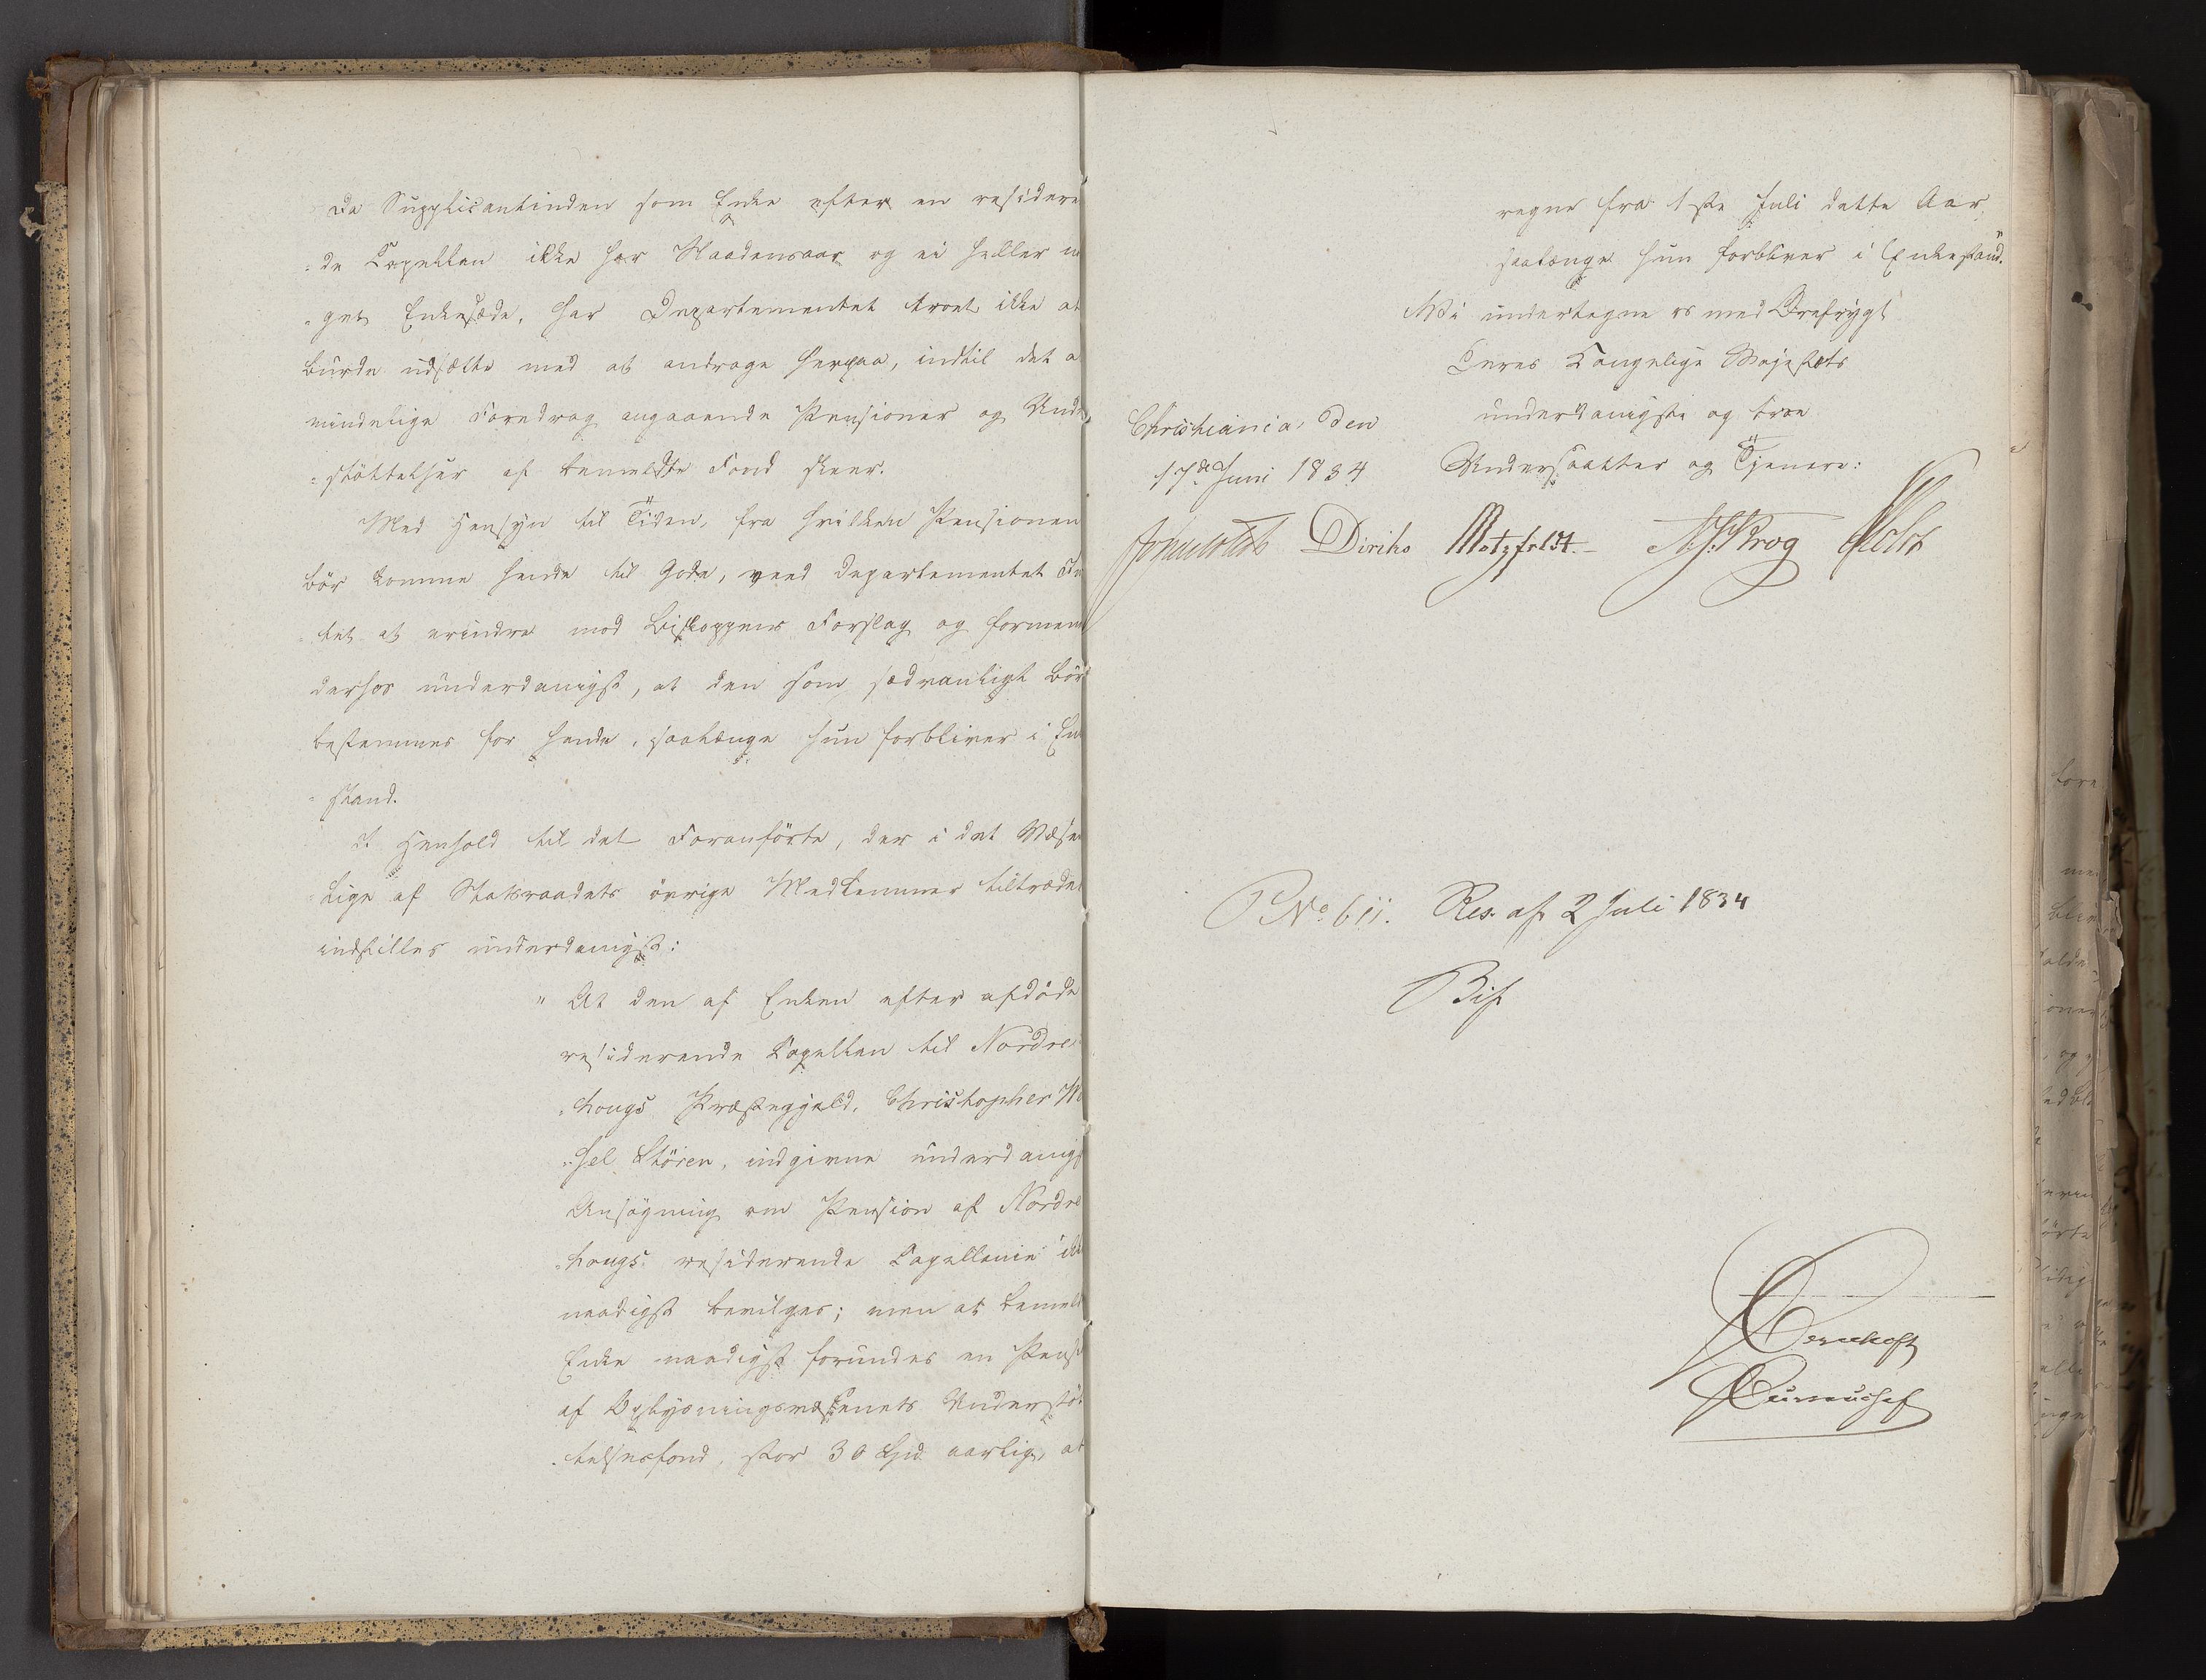 Da Supplicantinden som Enke efter en residere
=de Capellan ikke har Naadensaar og ei heller no
=get Enkesæde, har Departementet troet ikke at
burde udsætte med at andrage herpaa, indtil det al
mindelige Foredrag angaaende Pensioner og Unde
=støttelser af bemeldte Fond skeer.
Med Hensyn til Tiden, fra hvilken Pensionen
bör komme hende til Gode, veed Departementet In
tet at erindre mod Biskoppens Forslag og formene
derhos underdanigst, at den som sædvanligt bör
bestemmes for hende, saalænge hun forbliver i Enk
=stand.
I Henhold til det Foranförte, der i det Væsen
=lige af Statsraadets övrige Medlemmer tiltrædes
indstilles underdanigst:
" At den af Enken efter afdöde
residerende Capellan til Nordre
=hougs Præstegjeld, Christopher W
=sel Stören, indgivne underdanigs
Ansögning om Pension af Nordre
=hougs residerende Capellanie ikk
naadigst bevilges; men at bemeld
Enke naadigst forundes en Pensi
af Oplysningsvæsenets Understöt
=telsesfond, stor 30 Spd. aarlig, at
regne fra 1ste Juli dette Aar,
saalænge hun forbliver i Enkestand.
Vi undertegne os med Ærefrygt
Deres Kongelige Majestæts
underdanigste og troe
Undersaatter og Tjenere:
Christiania, den
17de Juni 1834
Diriks Motzfeldt. Krog Holst
P No. 611. Res. af 2 Juli 1834
Bif